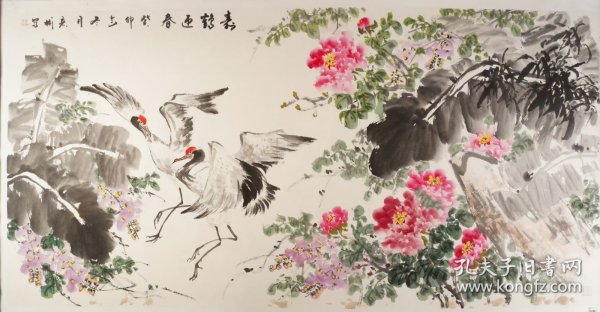 嘉鹤迎春 癸卯之冬月京州写
孔夫子旧书网
www.kongfz.com